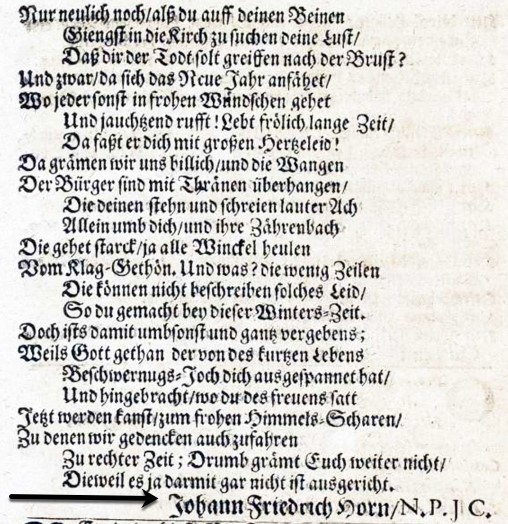 Nur neulich noch/alß du auff deinen Beinen
Giengst in die Kirch zu suchen deine Lust/
Daß dir der Todt solt greiffen nach der Brust?
Und zwar/da sich das Neue Jahr anfähet/
Wo jeder sonst in frohen Wündschen gehet
Und jauchtzend rufft! Lebt frölich lange Zeit/
Da faßt er dich mit großen Hertzeleid!
Da grämen wir uns billich/und die Wangen
Der Bürger sind mit Thränen überhangen/
Die deinen stehn und schreien lauter Ach
Allein umb dich/und ihre Zährenbach
Die gehet starck/ja alle Winckel heulen
Vom Klag-Gethön. Und was? die wenig Zeilen
Die können nicht beschreiben solches Leid/
So du gemacht bey dieser Winters-Zeit.
Doch ists damit umbsonst und gantz vergebens;
Weils Gott gethan der von des kurtzen Lebens
Beschwernugs-Joch dich ausgespannet hat/
Und hingebracht/wo du des freuens satt
Jetzt werden kanst/zum frohen Himmels-Scharen/
Zu denen wir gedencken auch zufahren
Zu rechter Zeit; Drumb grämt Euch weiter nicht/
Dieweil es ja darmit gar nicht ist ausgericht.
Johann Friedrich Horn/N.P.J C.